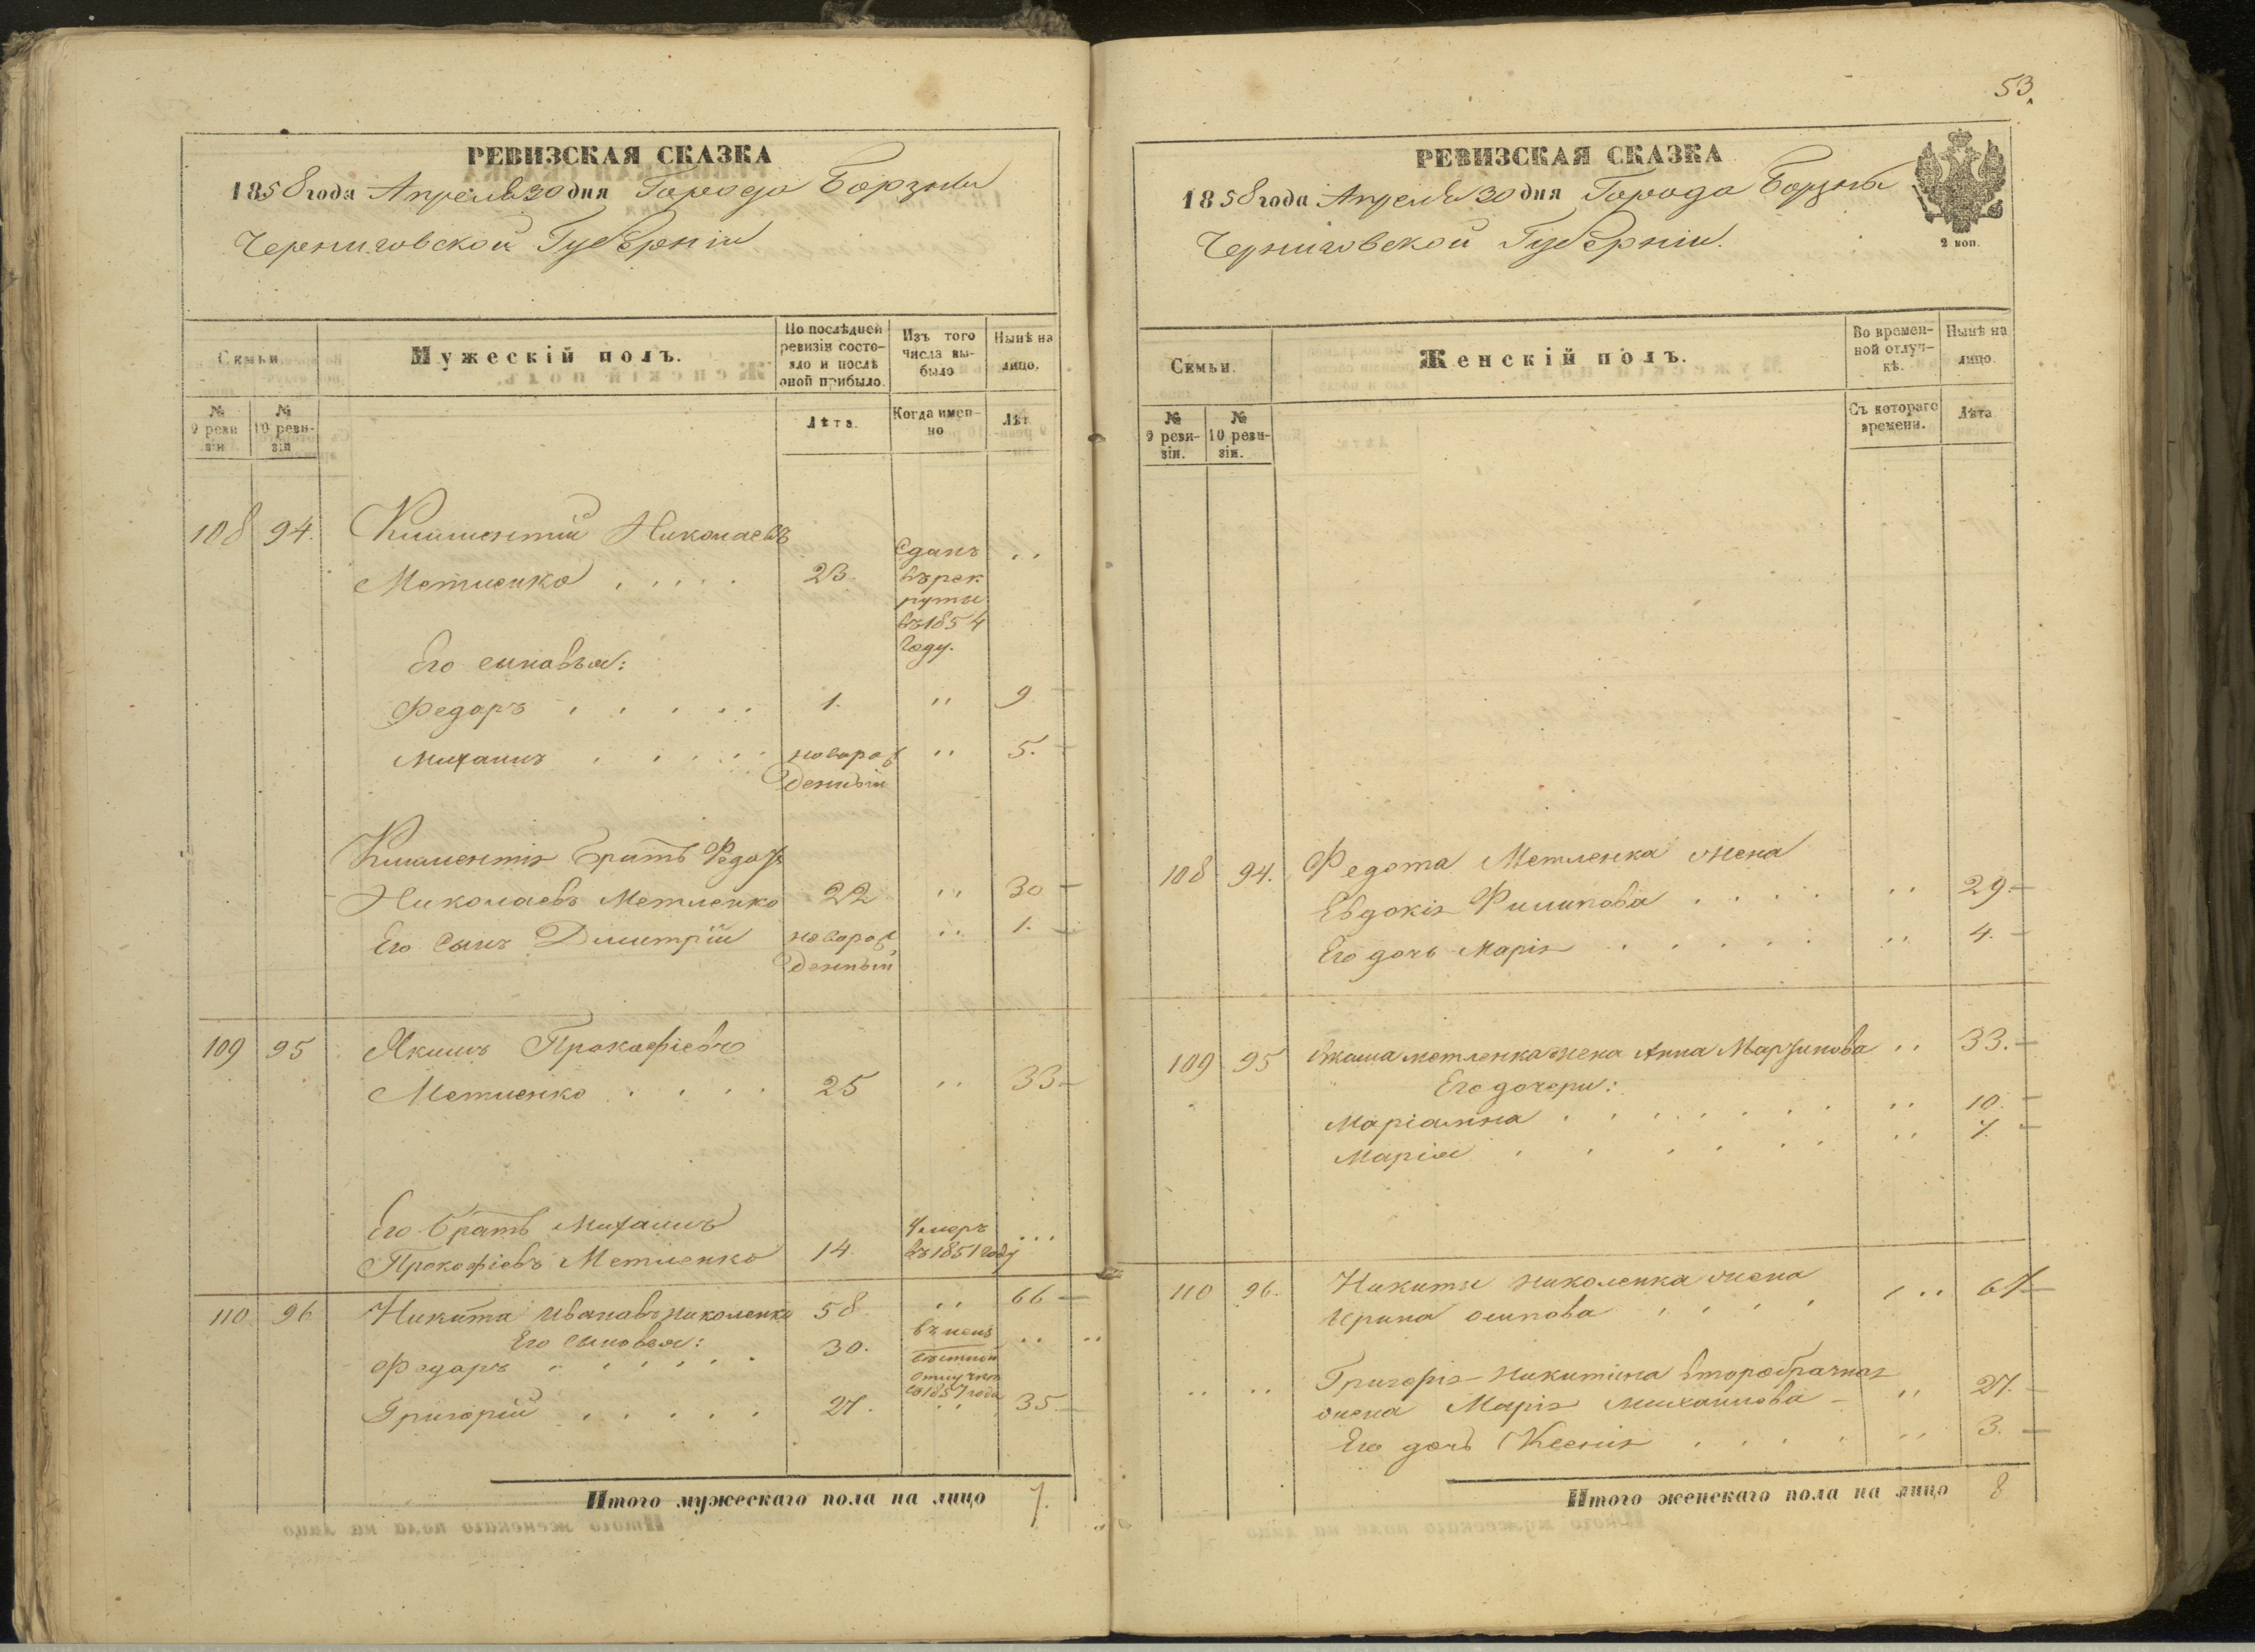 РЕВИЗСКАЯ СКАЗКА
1858 года Апреля 30 дня Города Борзны
Черниговской Губерніи
Семьи
Мужескій полъ.
По послѣдней ревизіи состояло и послѣ оной прибыло.
Изъ того числа выбыло
Нынѣ на лицо.
№ 9 ревизіи
№ 10 ревизіи
Лѣта.
Когда именно
Лѣт
108 94. Климентій Николаевъ
Метленко 23. Сданъ въ рекруты въ 1854 году. ..
Его сыновья:
Федоръ 1. " 9
Михаилъ новорожденный " 5.
Климентія братъ Федотъ
Николаевъ Метленко 22 " 30
Его сынъ Димитрій новорожденный " 1.
109 95 Якимъ Прокофіевъ
Метленко 25 " 33
Его братъ Михаилъ
Прокофіевъ Метленко 14 умеръ въ 1851 году ...
110 96 Никита Ивановъ Николенко 58 " 66
Его сыновья:
Федоръ 30. въ неизвѣстной отлучкѣ съ 1857 года ..
Григорій 27. " 35.
Итого мужескаго пола на лицо 7.
53.
РЕВИЗСКАЯ СКАЗКА
1858 года Апреля 30 дня Города Борзны
Черниговской Губерніи.
2 коп.
Семьи.
Женскій полъ.
Во временной отлучкѣ.
Нынѣ на лицо.
№ 9 ревизіи.
№ 10 ревизіи.
Съ котораго времени.
Лѣта
108 94. Федота Метленка жена
Евдокія Филипова " 29.
Его дочь Марія " 4.
109 95 Якима Метленка жена Анна Мартинова " 33.
Его дочери:
Маріанна " 10.
Марія " 7.
110 96. Никиты Николенка жена
Ирина Осипова " 67
" " Григорія Никитина второбрачная
жена Марія Михаилова " 27.
Его дочь Ксенія " 3.
Итого женскаго пола на лицо 8